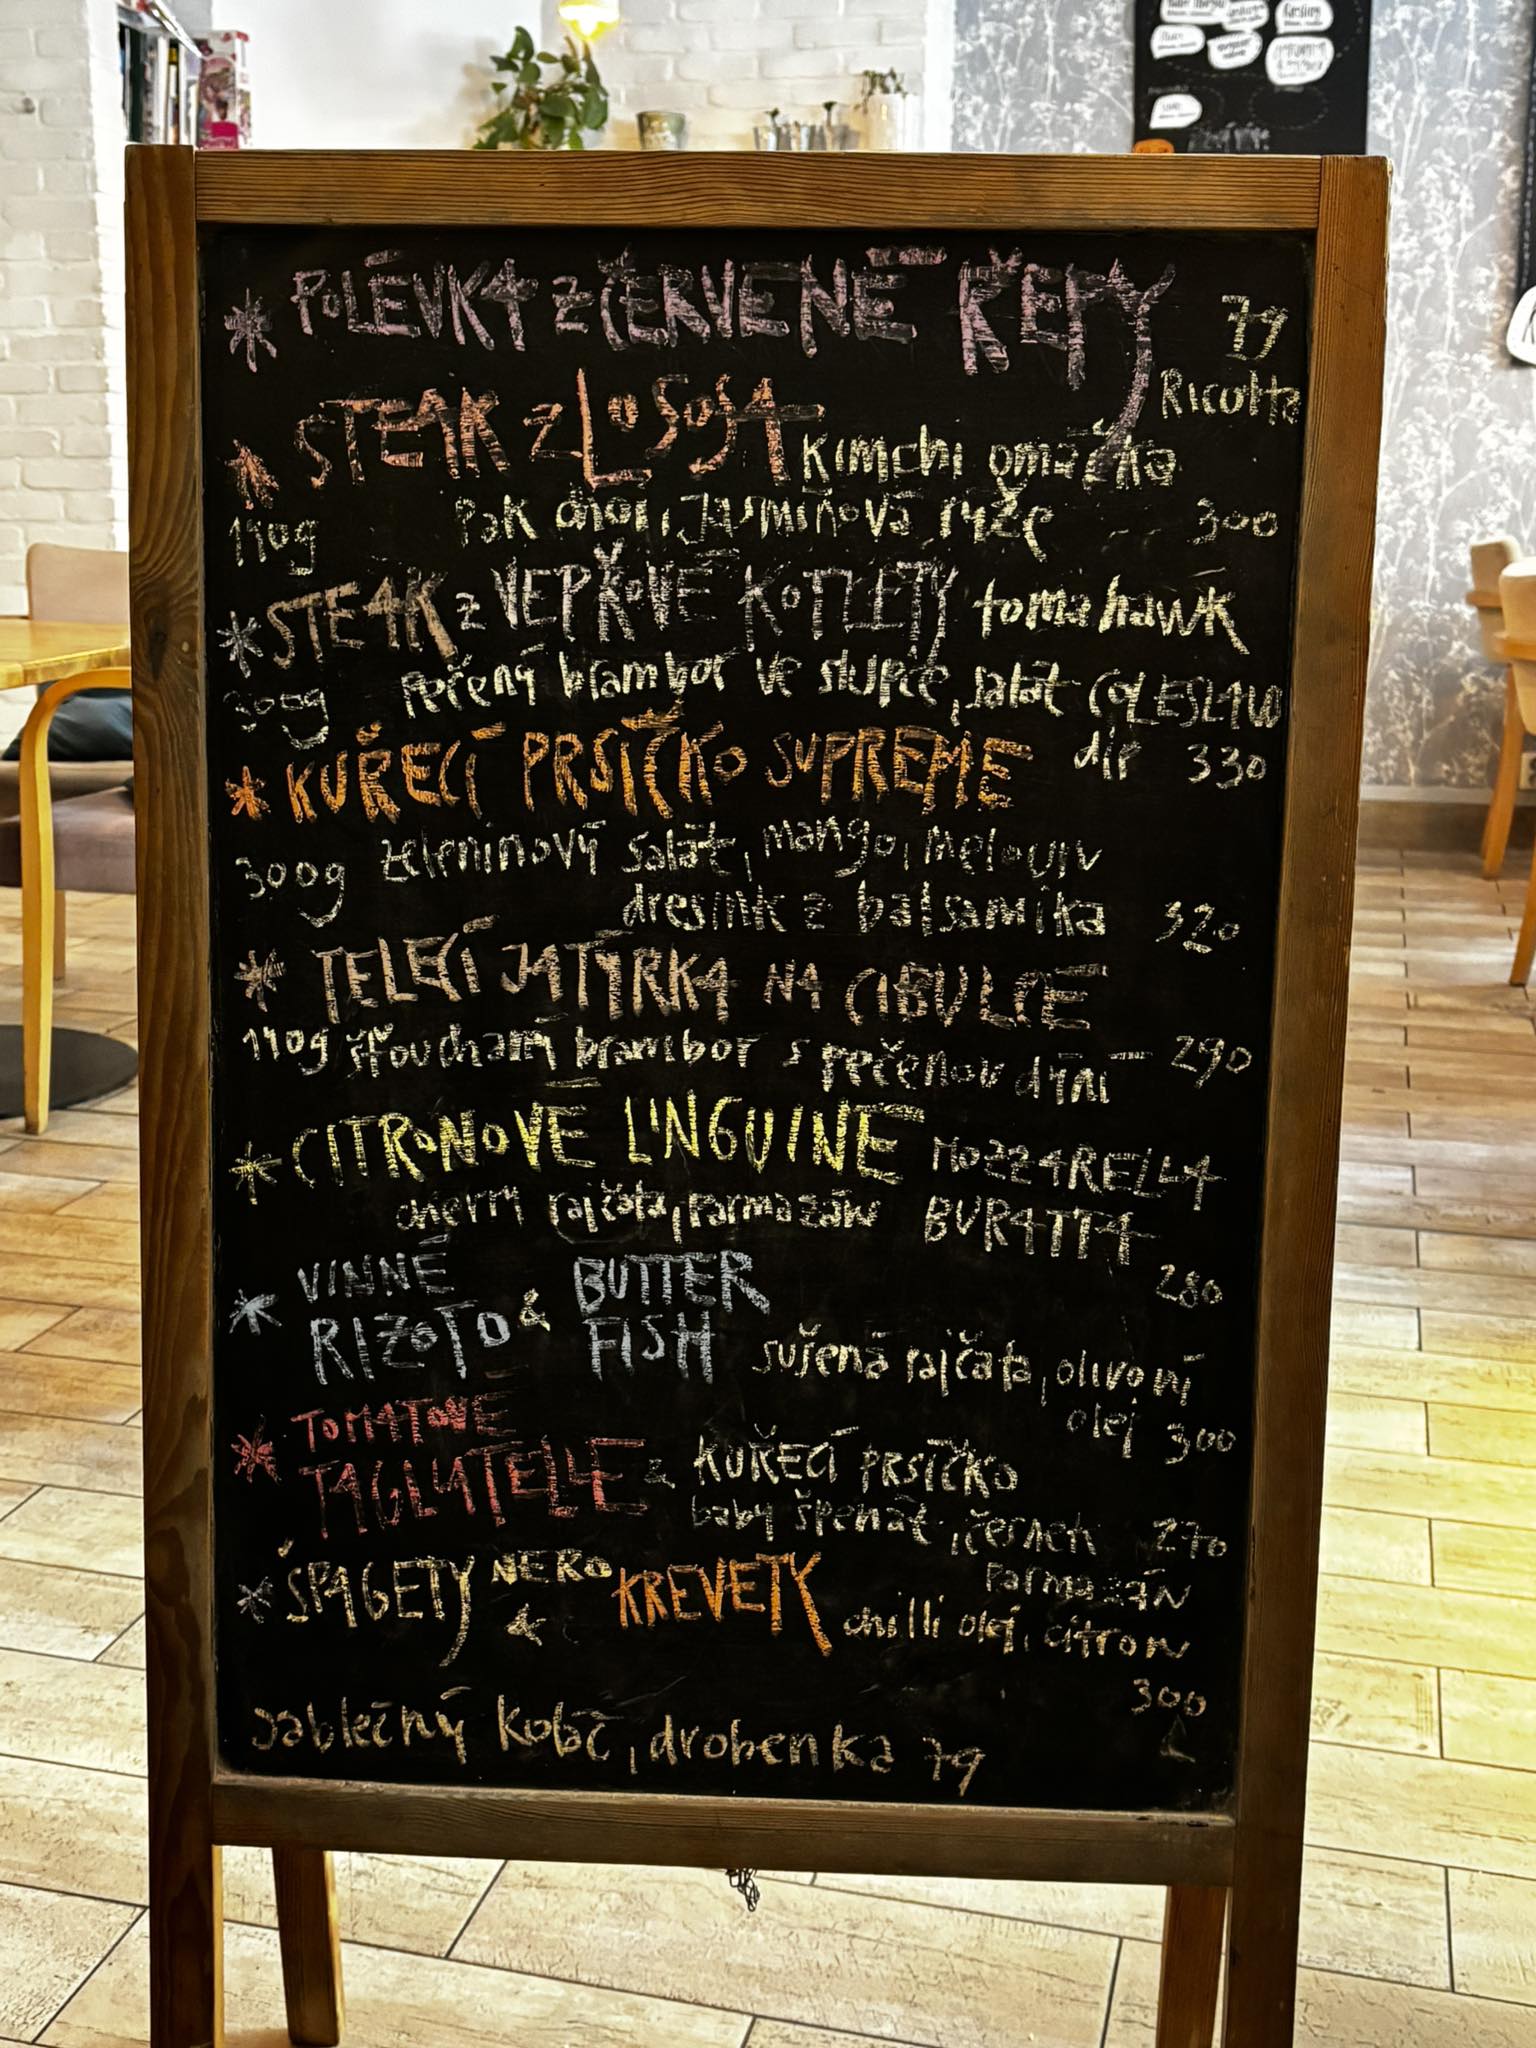 * POLÉVKA Z ČERVENÉ ŘEPY 79
Ricotta
* STEAK Z LOSOSA Kimchi omáčka
140g Pak choi, Jasmínová rýže 300
* STEAK z VEPŘOVÉ KOTLETY tomahawk
300g Pečený brambor ve slupce, salát COLESLAW
dip 330
* KUŘECÍ PRSÍČKO SUPREME
300g zeleninový salát, mango, meloun
dresink z balsamika 320
* TELECÍ JATÝRKA NA CIBULCE
140g šťouchaný brambor s pečenou dýní 290
* CITRONOVÉ LINGUINE MOZZARELLA
cherry rajčata, Parmazán BURATTA
280
* VINNÉ
RIZOTO & BUTTER
FISH sušená rajčata, olivový
olej 300
* TOMATOVÉ
TAGLIATELLE & KUŘECÍ PRSÍČKO
baby špenát, česnek 270
Parmazán
* ŠPAGETY NERO & KREVETY chilli olej, citron
300
Jablečný koláč, drobenka 79